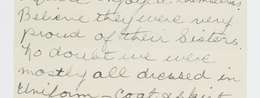 Believe they were very
proud of their Sisters.
No doubt we were
mostly all dressed in
Uniform - Coat & skirt